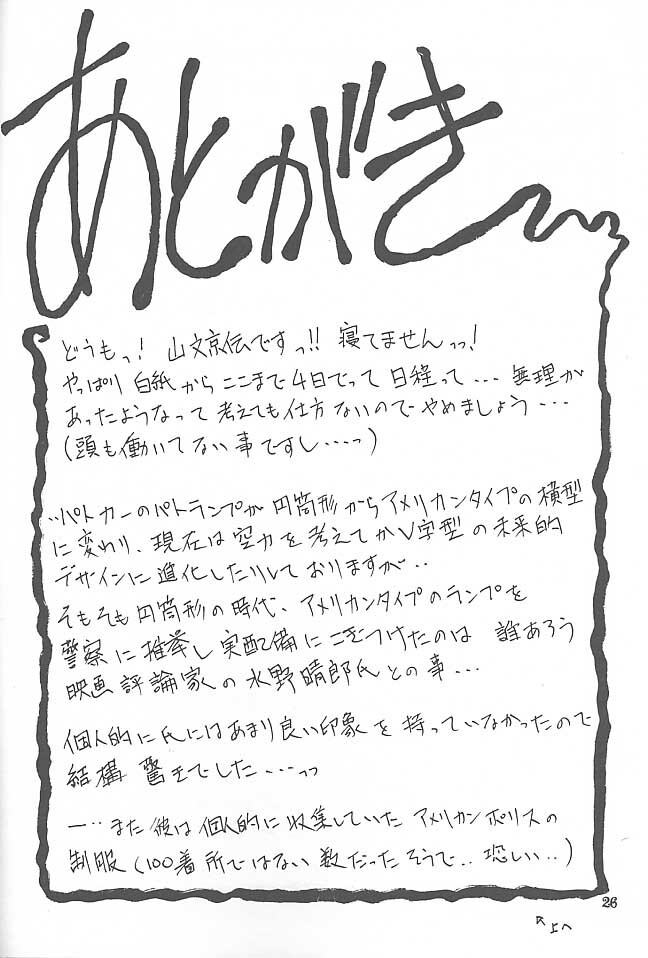 あとがき
どうもっ! 山文京伝ですっ!! 寝てませんっっ!
やっぱり 白紙からここまで4日でって 日程って... 無理が
あったようなって 考えても仕方ないので やめましょう...
(頭も働いてない事ですし...っっ)
..パトカーのパトランプが 円筒形からアメリカンタイプの横型
に変わり、現在は空力を考えてか V字型の未来的
デザインに進化したりしておりますが..
そもそも円筒形の時代、アメリカンタイプのランプを
警察に推挙し実配備にこぎつけたのは 誰あろう
映画評論家の水野晴郎氏との事...
個人的に氏にはあまり良い印象を持っていなかったので
結構 驚きでした...っっ
ー..また彼は個人的に収集していた アメリカンポリスの
制服(100着所ではない数だったそうで..恐しい..)
26
↖上へ